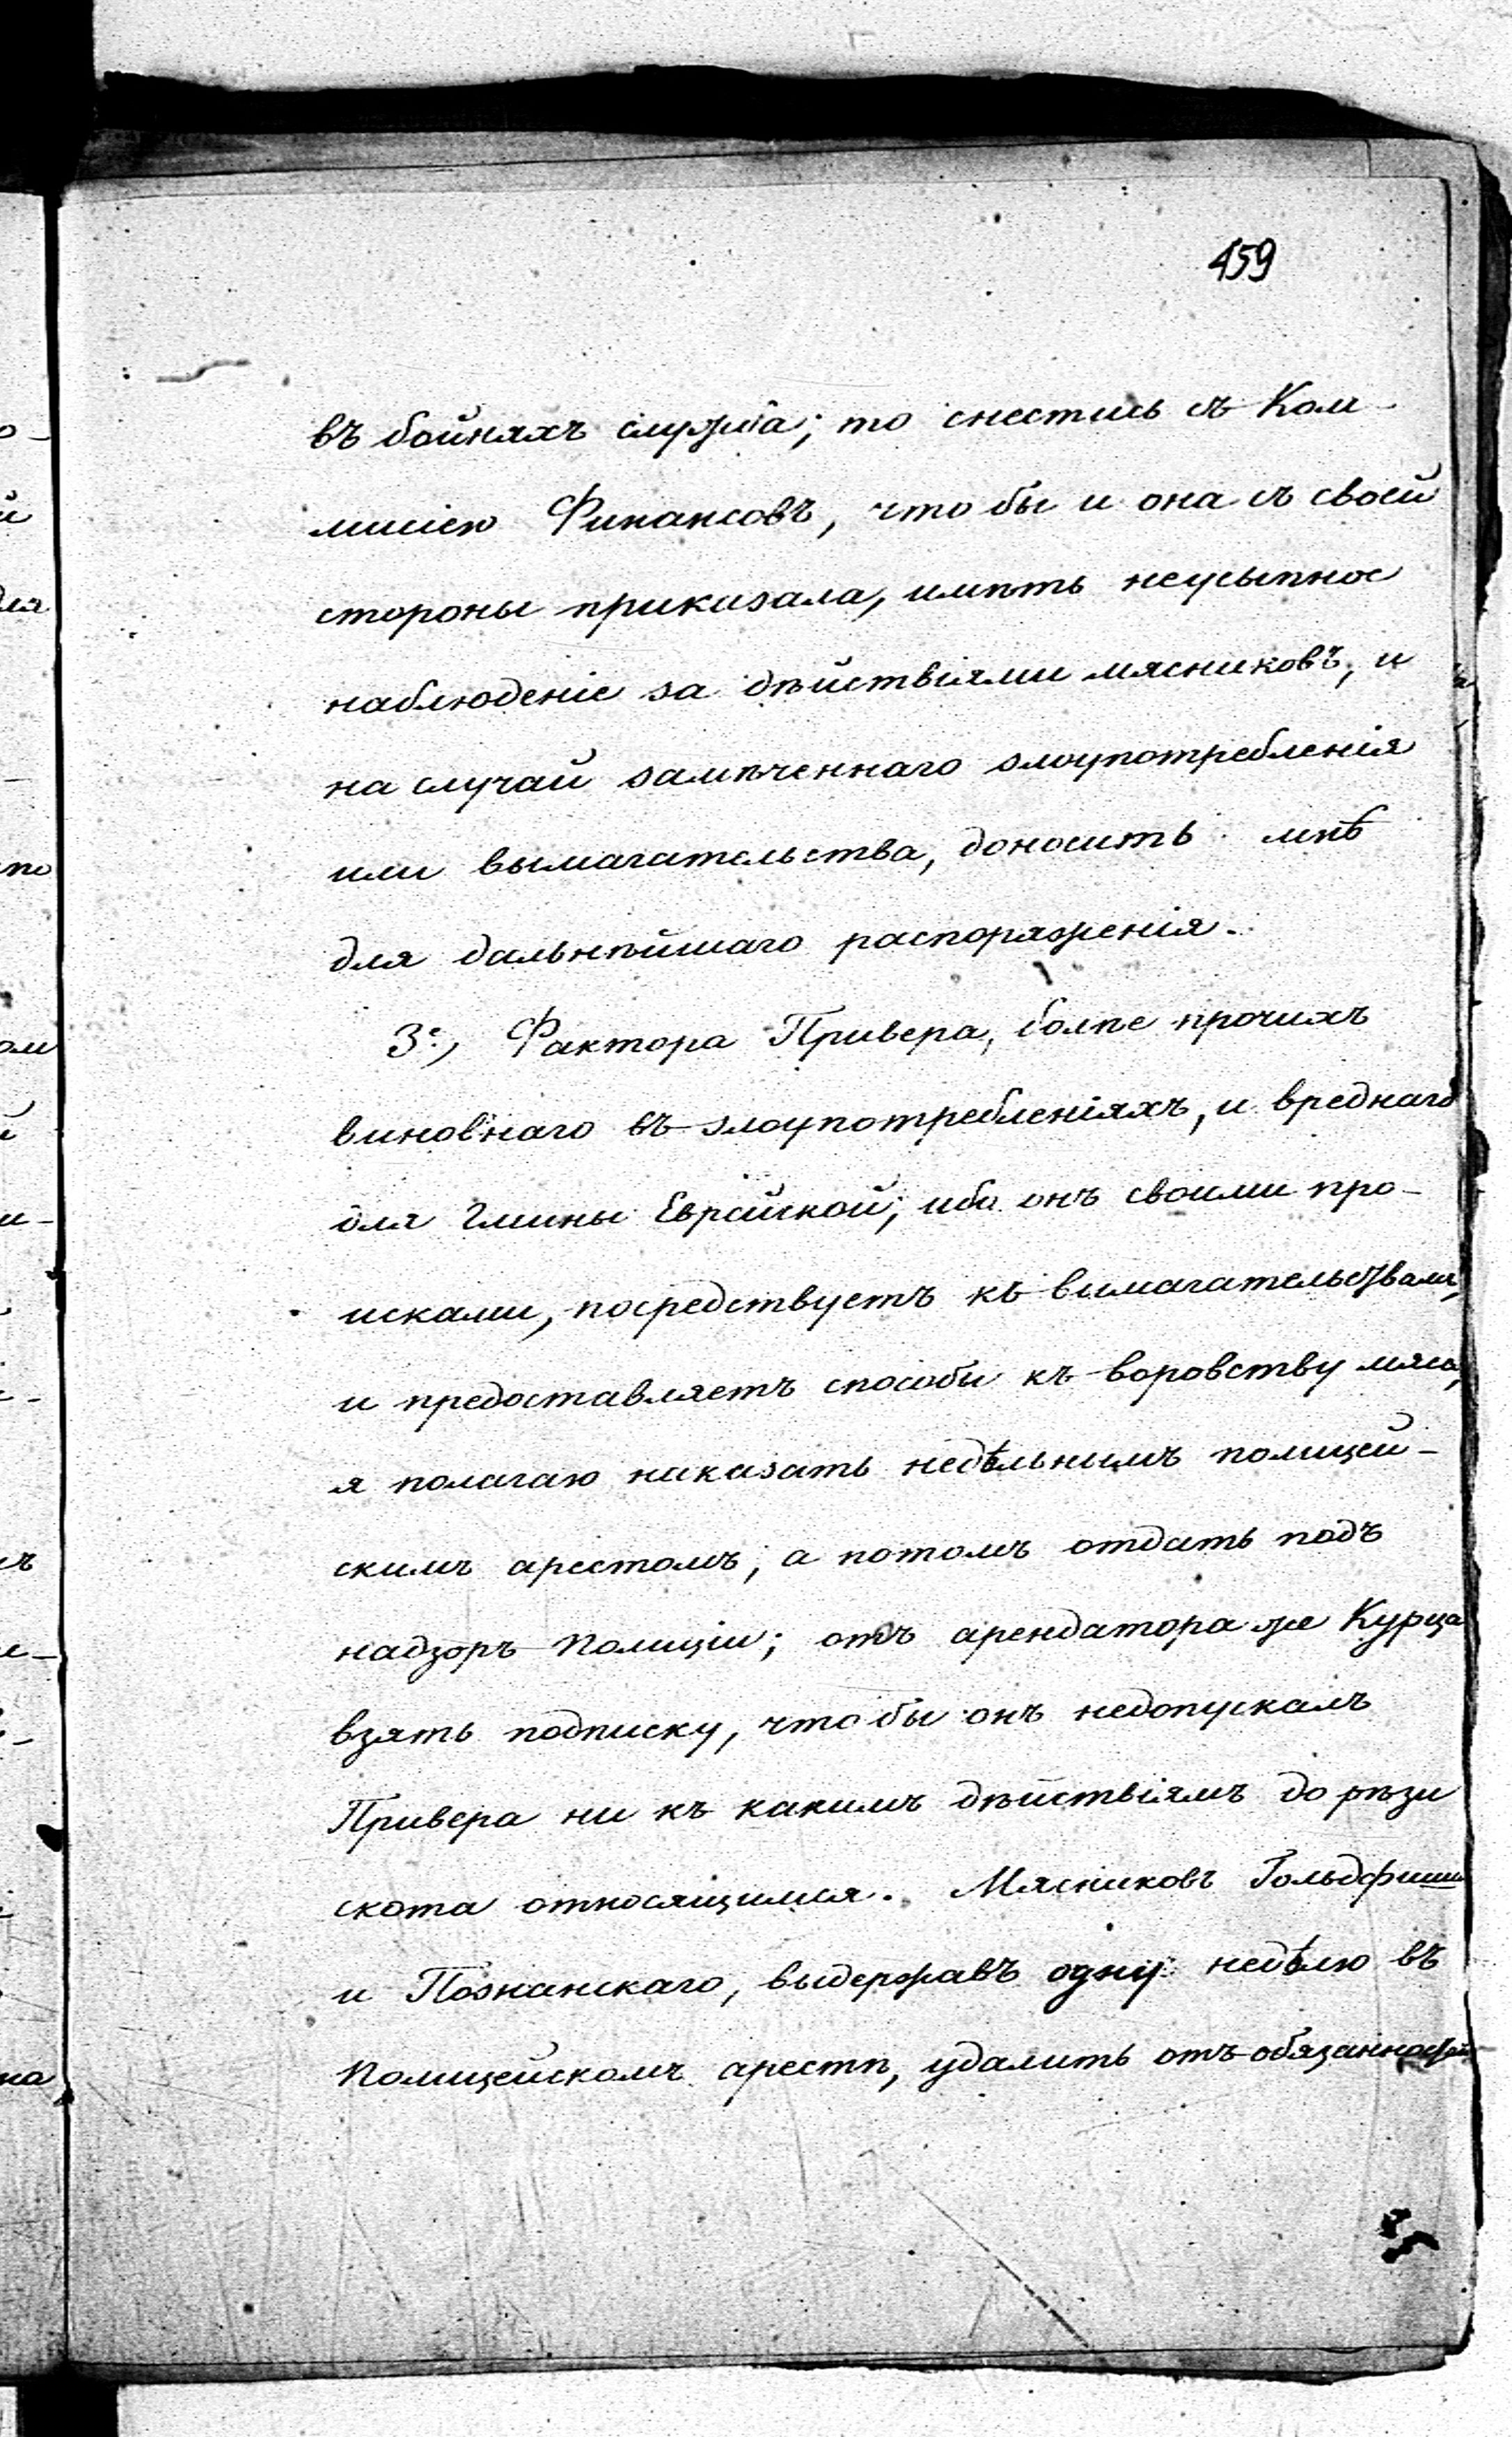 459
въ бойняхъ служба; то снестись съ Ком-
мисіею Финансовъ, что бы и она съ своей
стороны приказала, имѣть неусыпное
наблюденіе за дѣйствіями мясниковъ, и
на случай замѣченнаго злоупотребленія
или вымагательства, доносить мнѣ
для дальнѣйшаго распоряженія.
3е, Фактора Привера, болѣе прочихъ
виновнаго въ злоупотребленіяхъ, и вреднаго
для Гмины Еврейской; ибо онъ своими про-
исками, посредствуетъ къ вымагательствамъ,
и предоставляетъ способы къ воровству мяса,
я полагаю наказать недѣльнымъ полицей-
скимъ арестомъ; а потомъ отдать подъ
надзоръ Полиціи; отъ арендатора же Курца
взять подписку, что бы онъ недопускалъ
Привера ни къ какимъ дѣйствіямъ до рѣзи
скота относящимся. Мясниковъ Гольдфиша
и Познанскаго, выдержавъ одну недѣлю въ
Полицейскомъ арестѣ, удалить отъ обязанностей